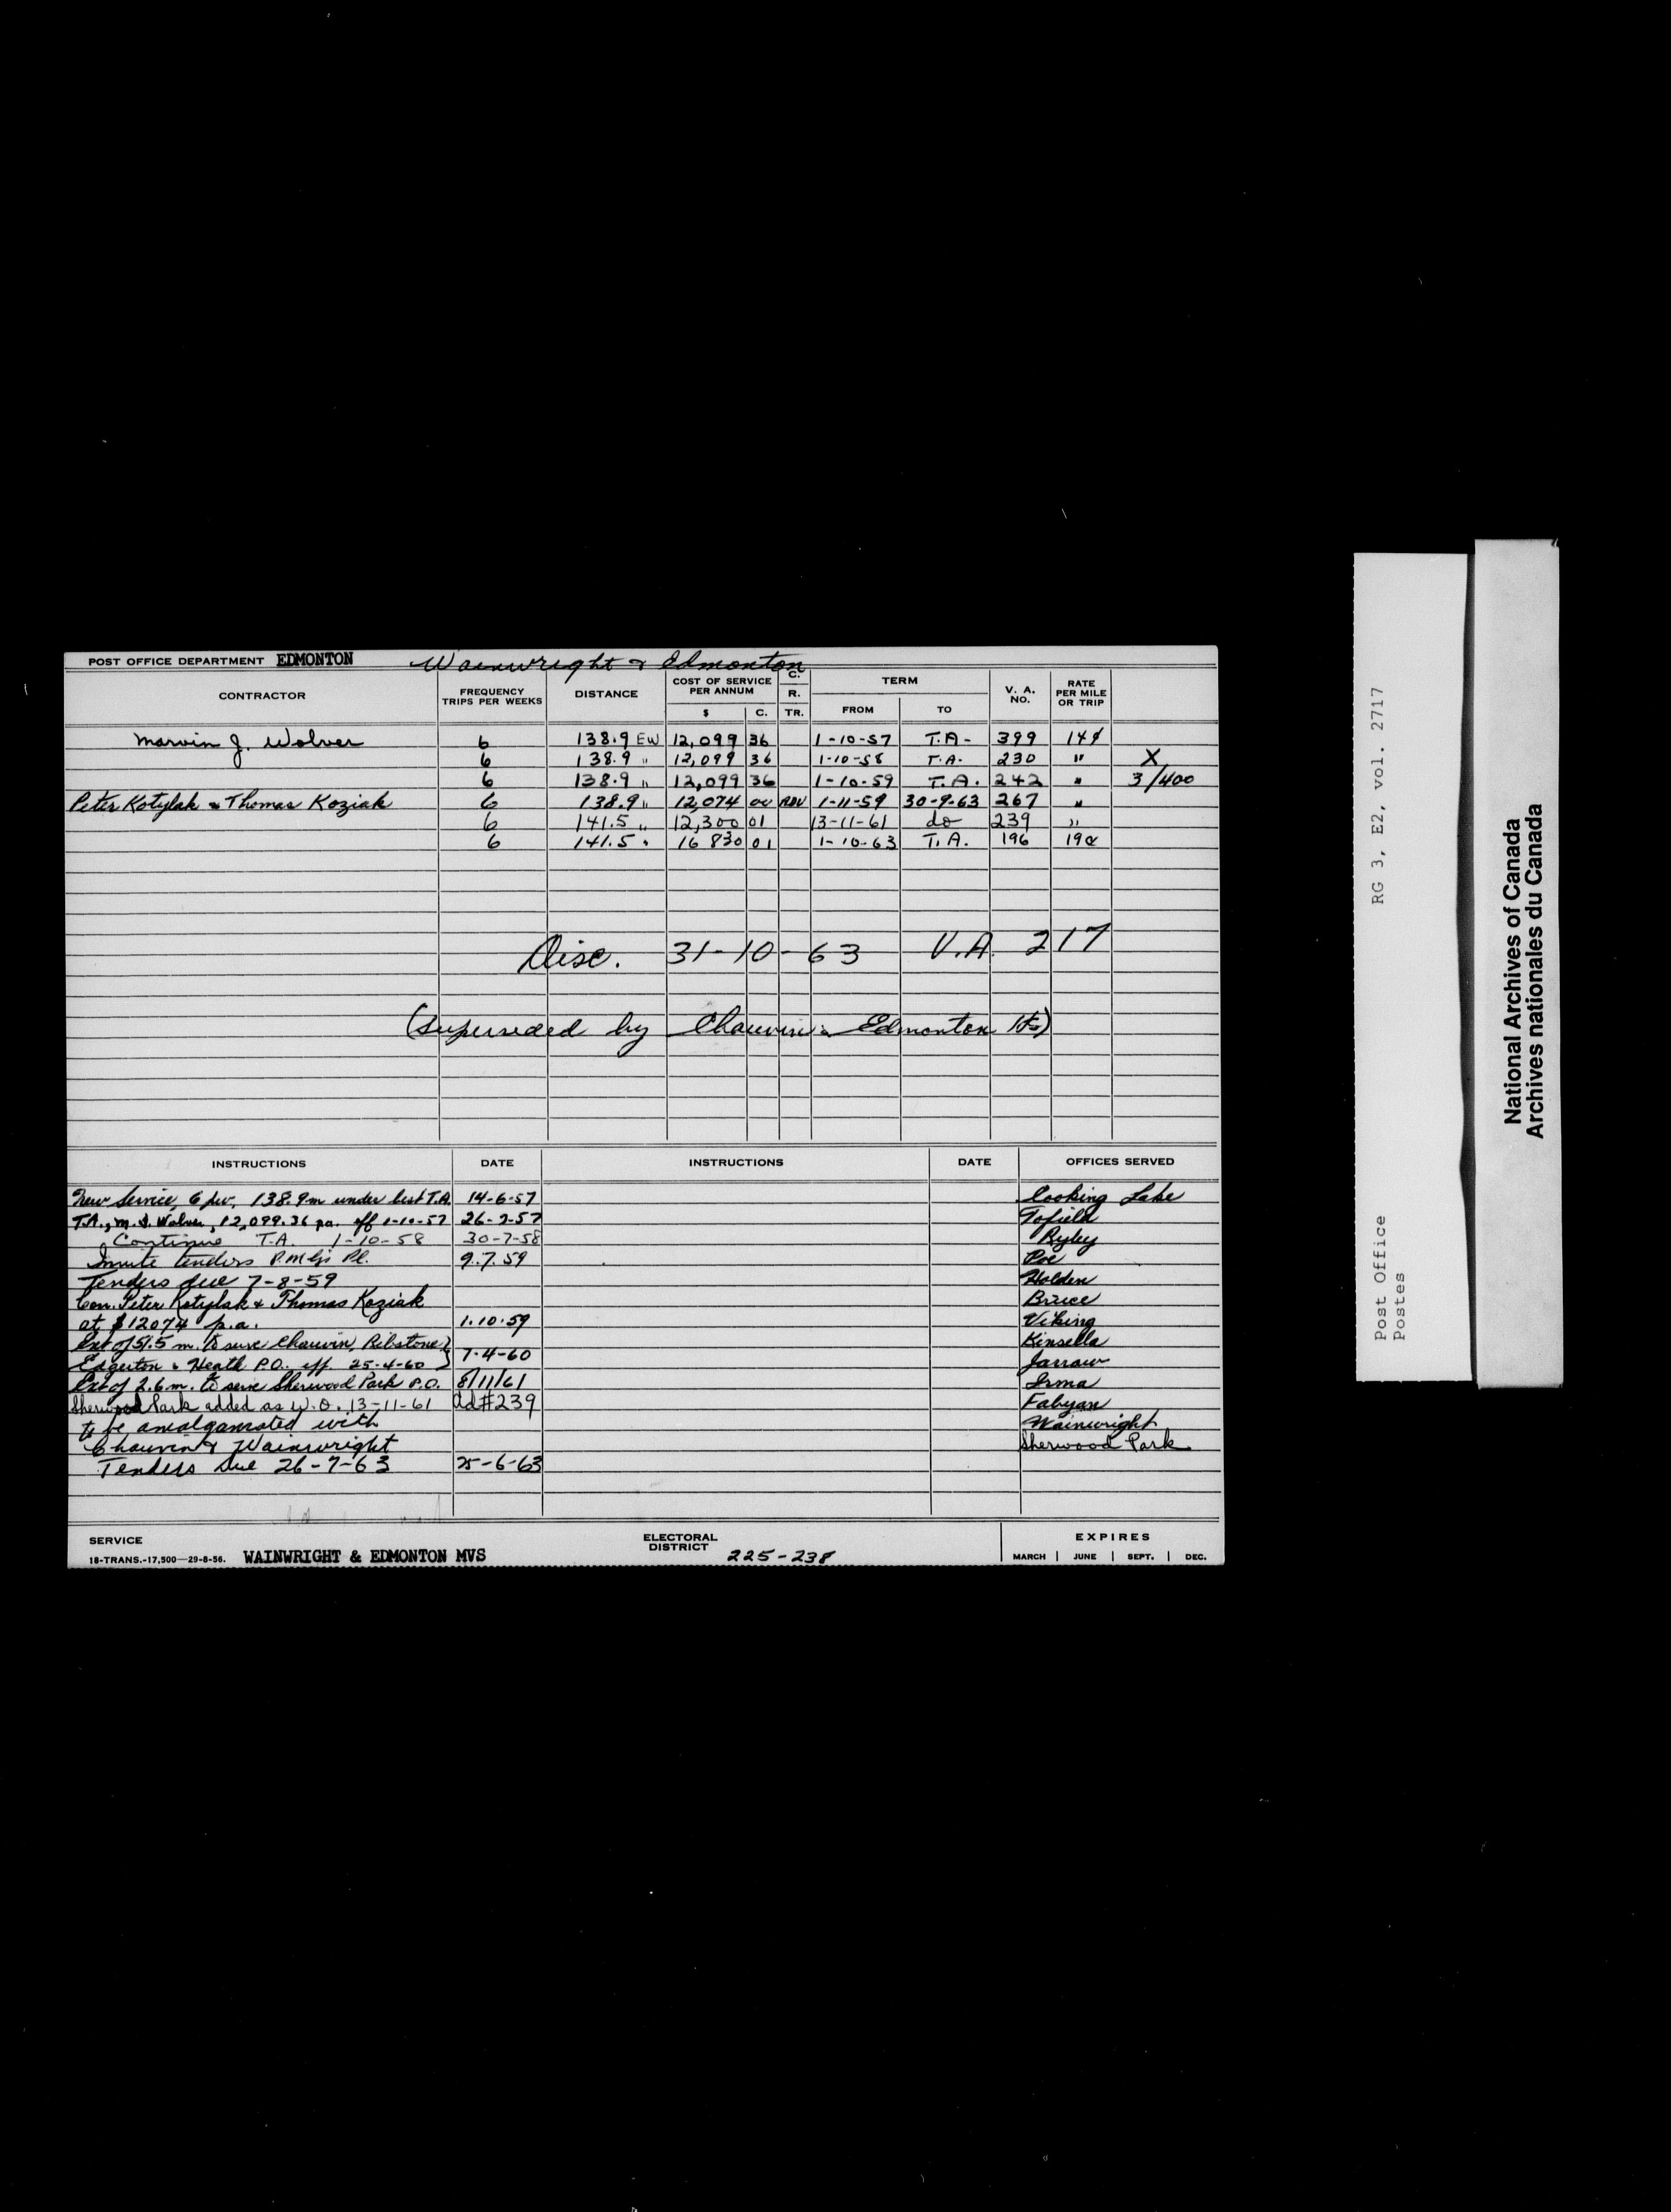 POST OFFICE DEPARTMENT EDMONTON Wainwright & Edmonton
CONTRACTOR FREQUENCY TRIPS PER WEEKS DISTANCE COST OF SERVICE PER ANNUM $ C. C. R. TR. TERM FROM TO V. A. NO. RATE PER MILE OR TRIP
Marvin J. Wolver 6 138.9 EW 12,099 36 1-10-57 T.A- 399 14¢
6 138.9 " 12,099 36 1-10-58 T.A. 230 " X
6 138.9 " 12,099 36 1-10-59 T.A. 242 " 3/400
Peter Kotylak & Thomas Koziak 6 138.9 " 12,074 00 ADV 1-11-59 30-9-63 267 "
6 141.5 " 12,300 01 13-11-61 do 239 "
6 141.5 " 16 830 01 1-10-63 T.A. 196 19¢
Disc. 31-10-63 V.A. 217
(Superseded by Chauvin & Edmonton
INSTRUCTIONS DATE INSTRUCTIONS DATE OFFICES SERVED
New Service, 6 pw, 138.9m under best T.A. 14-6-57 Cooking Lake
T.A., M.J. Wolver, 12,099.36 pa. eff 1-10-57 26-9-57 Tofield
Continue T.A. 1-10-58 30-7-58 Ryley
Invite tenders 9.7.59 Poe
Tenders due 7-8-59 Holden
Con. Peter Kotylak & Thomas Koziak Bruce
at $12074 p.a. 1.10.59 Viking
Ext of 51.5 m. to serve Chauvin, Ribstone Kinsella
Edgerton & Heath P.O. eff. 25-4-60 7-4-60 Jarrow
Ext of 2.6 m. to serve Sherwood Park P.O. 8/11/61 Irma
Sherwood Park added as W.O. 13-11-61 Ad#239 Fabyan
to be amalgamated with Wainwright
Chauvin & Wainwright Sherwood Park
Tenders Due 26-7-63 25-6-63
SERVICE ELECTORAL DISTRICT 225-238 EXPIRES
18-TRANS.-17,500—29-8-56. WAINWRIGHT & EDMONTON MVS MARCH | JUNE | SEPT. | DEC.
Post Office RG 3, E2, vol. 2717
Postes
National Archives of Canada
Archives nationales du Canada